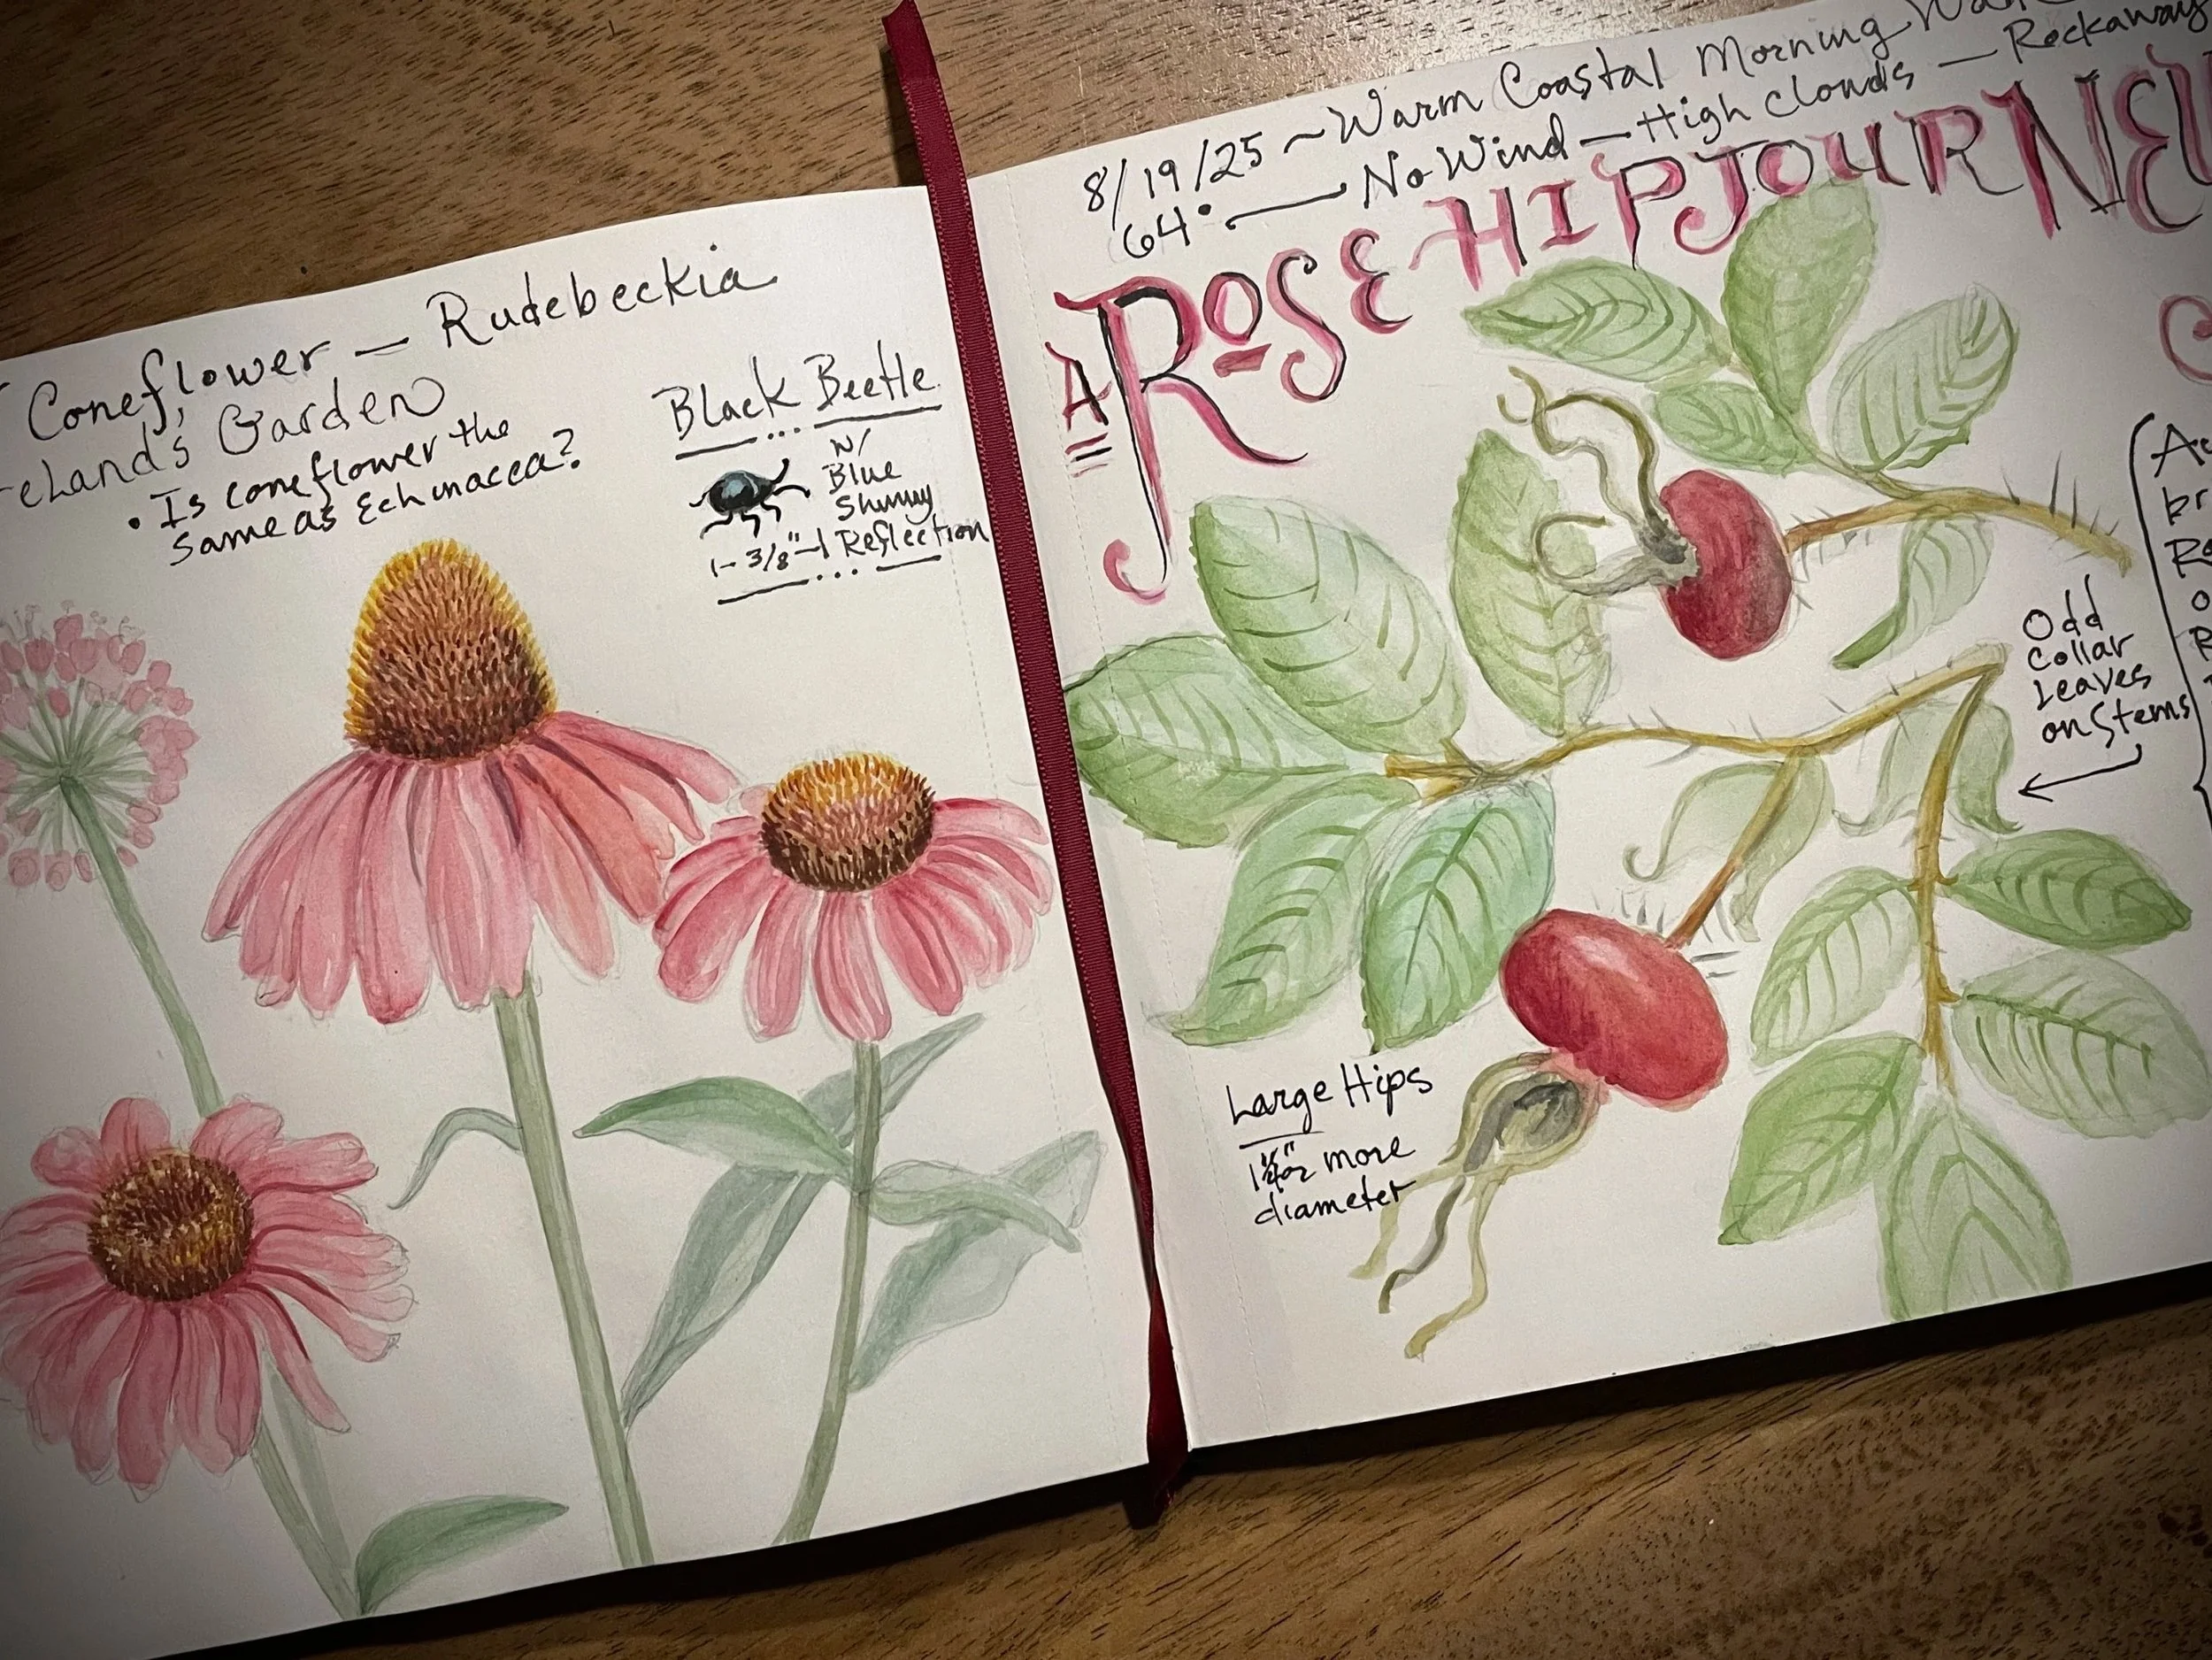 Coneflower — Rudebeckia
Garden
• Is coneflower the
same as Echinacea?
Black Beetle
w/
Blue
Shinny
|- 3/8" -| Reflection
8/19/25 ~ Warm Coastal Morning
64° — No Wind — High Clouds — Rockaway
A ROSE HIP JOURNEY
Odd
Collar
Leaves
on Stems
Large Hips
or more
diameter